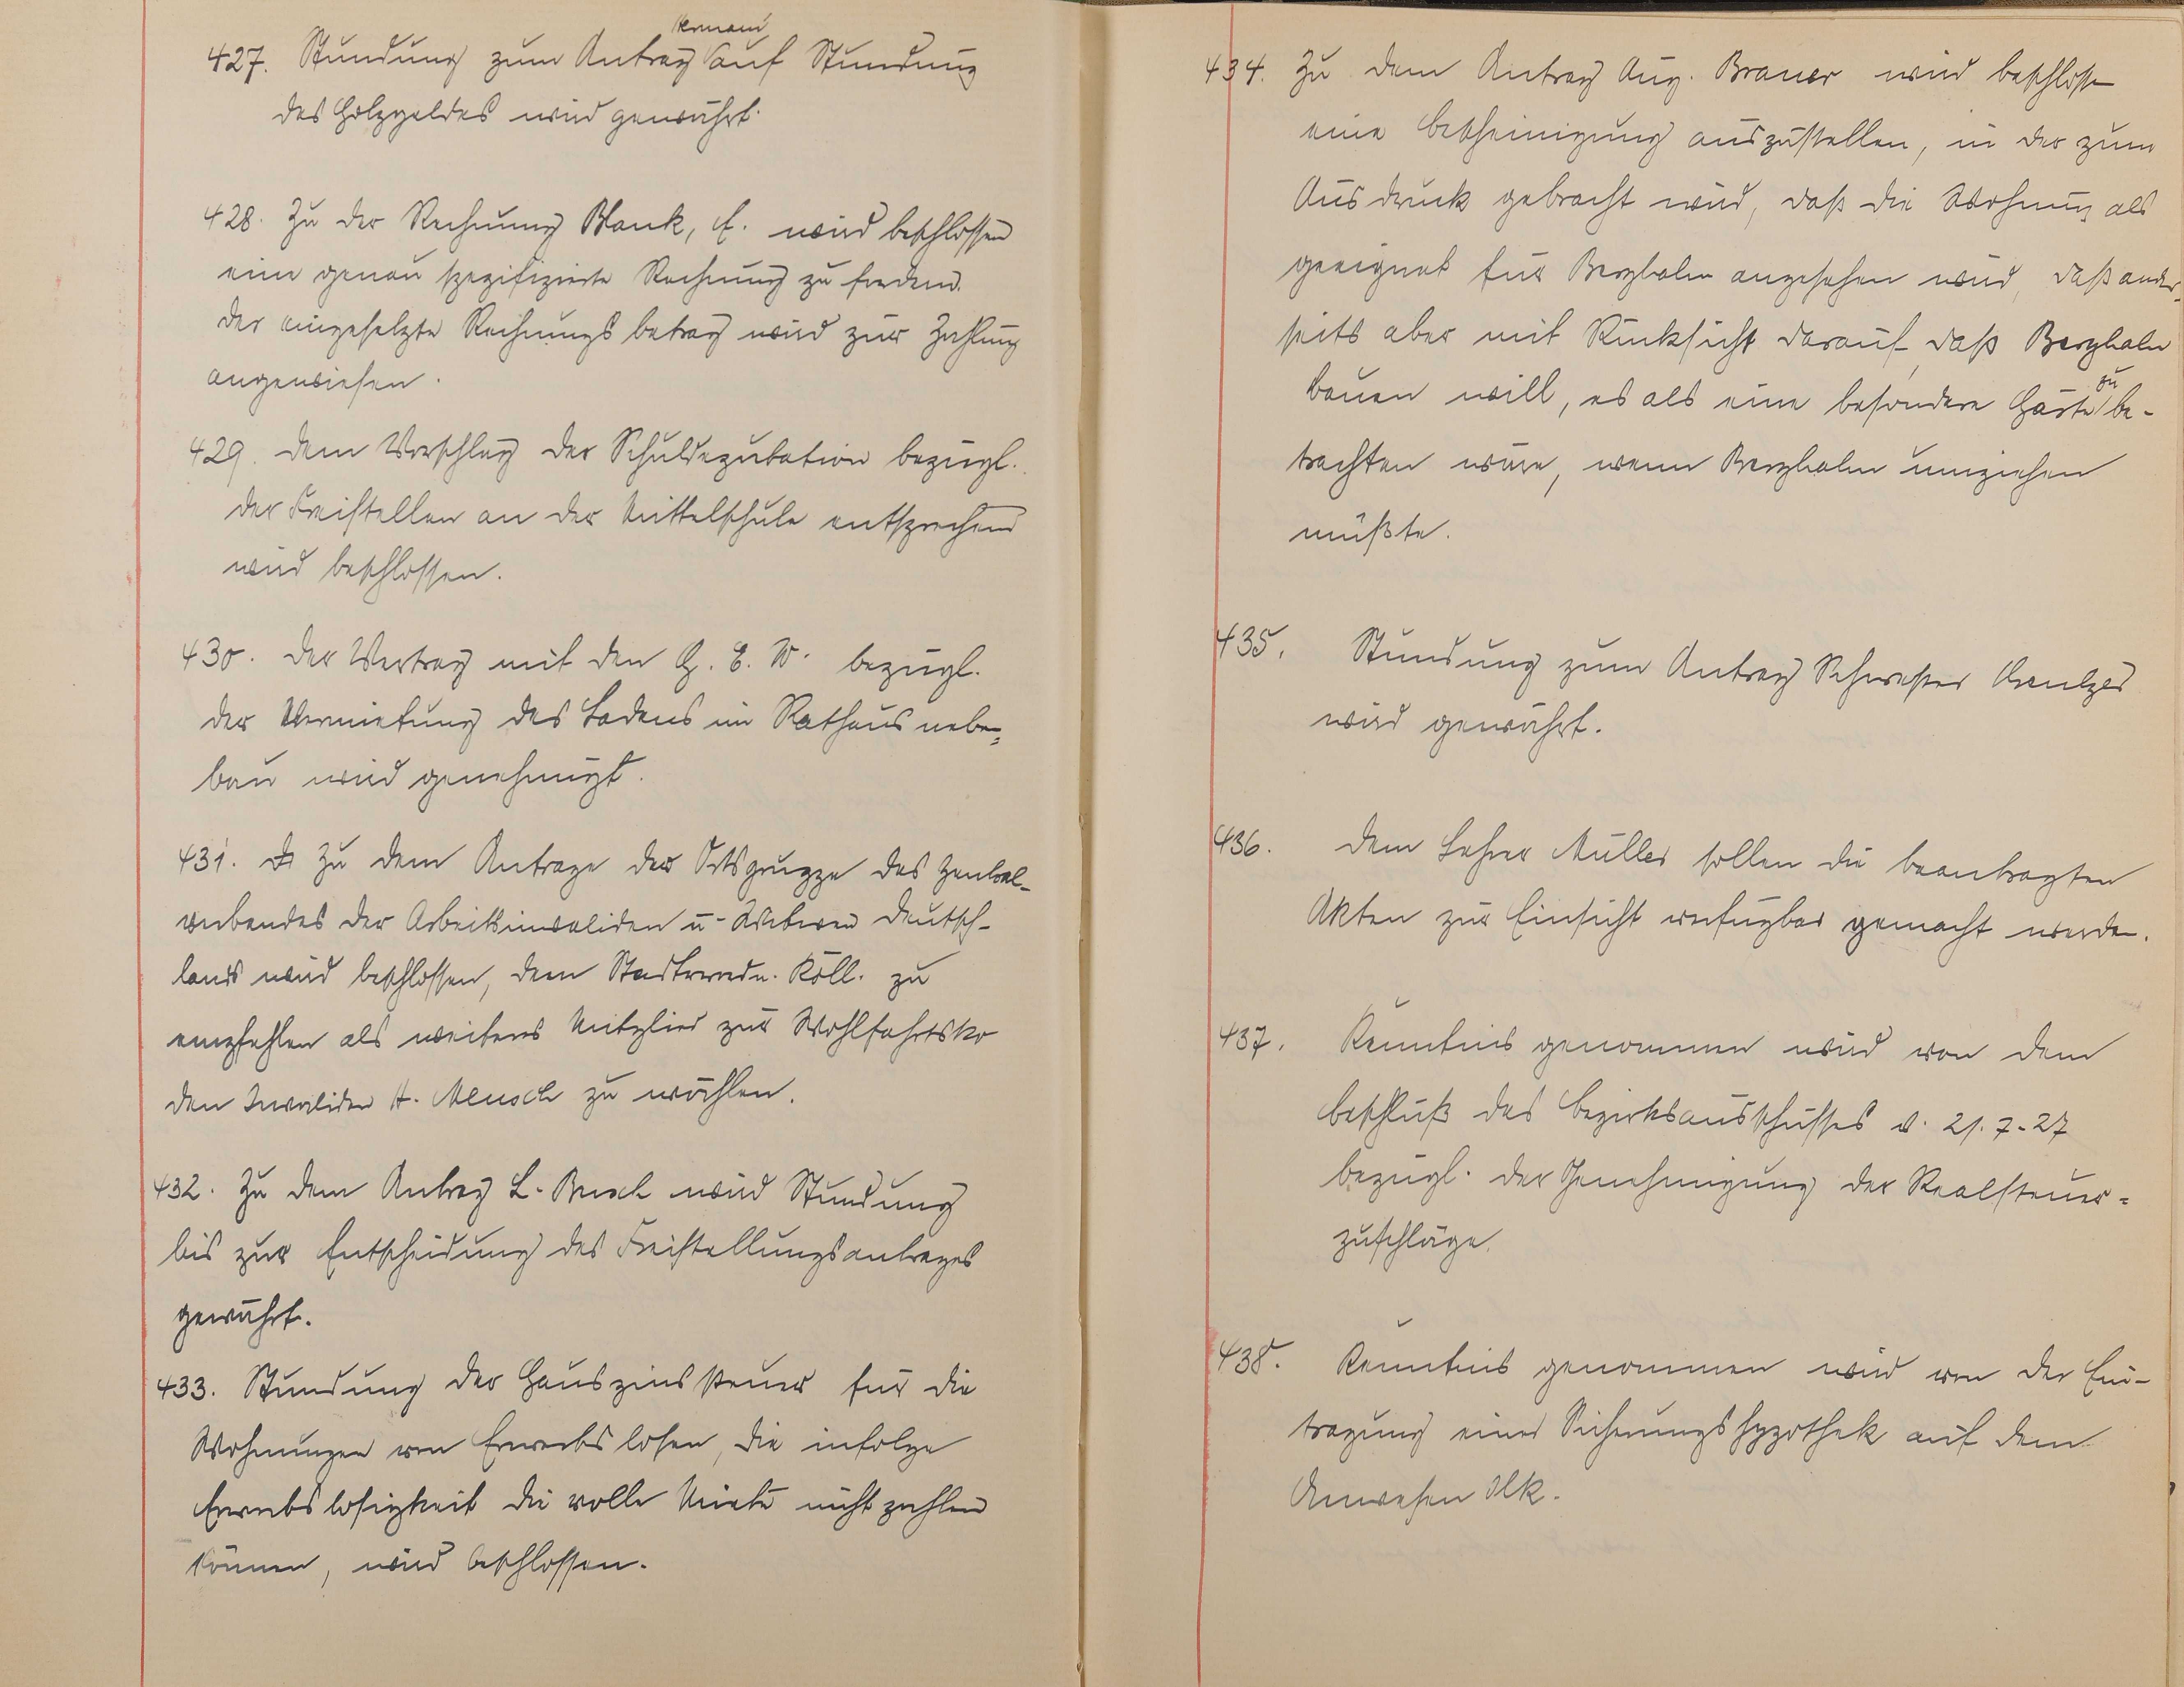 427. Stundung zum Antrag auf Stundung
des Holzgeldes wird gewährt.
428. Zu der Rechnung Blank, E. wird beschlossen
eine genau spezifizierte Rechnung zu fordern.
Der eingesetzte Rechnungsbetrag wird zur Zahlung
angewiesen.
429. Dem Vorschlag der Schuldeputation bezügl.
der Freistellen an der Mittelschule entsprechend
wird beschlossen.
430. Der Vertrag mit den G. E. W. bezügl.
der Vermietung des Ladens im Rathausneben=
bau wird genehmigt.
431. Zu dem Antrage der Ortsgruppe des Zentral-
verbandes der Arbeitsinvaliden u. Witwen Deutsch-
lands wird beschlossen, dem Stadtverordn. Koll. zu
empfehlen als weiteres Mitglied zur Wohlfahrtsko
den Invaliden H. Mensch zu wählen.
432. Zu dem Antrag L. Busch wird Stundung
bis zur Entscheidung des Freistellungsantrages
gewährt.
433. Stundung der Hauszinssteuer für die
Wohnungen von Erwerbslosen, die infolge
Erwerbslosigkeit die volle Miete nicht zahlen
können, wird beschlossen.
434. Zu dem Antrag Aug. Brauer wird beschlossen
eine Bescheinigung auszustellen, in der zum
Ausdruck gebracht wird, daß die Wohnung als
geeignet für Bergholm angesehen wird, daß ander-
seits aber mit Rücksicht darauf, daß Bergholm
bauen will, es als eine besondere Härte zu be-
trachten wäre, wenn Bergholm umziehen
müßte.
435. Stundung zum Antrag Schwester
wird gewährt.
436. Dem Lehrer Müller sollen die beantragten
Akten zur Einsicht verfügbar gemacht werden.
437. Kenntnis genommen wird von dem
Beschluß des Bezirksausschusses v. 21.7.27
bezügl. der Genehmigung der Realsteuer=
zuschläge.
438. Kenntnis genommen wird von der Ein-
tragung einer Sicherungshypothek auf dem
Anwesen Ilk.